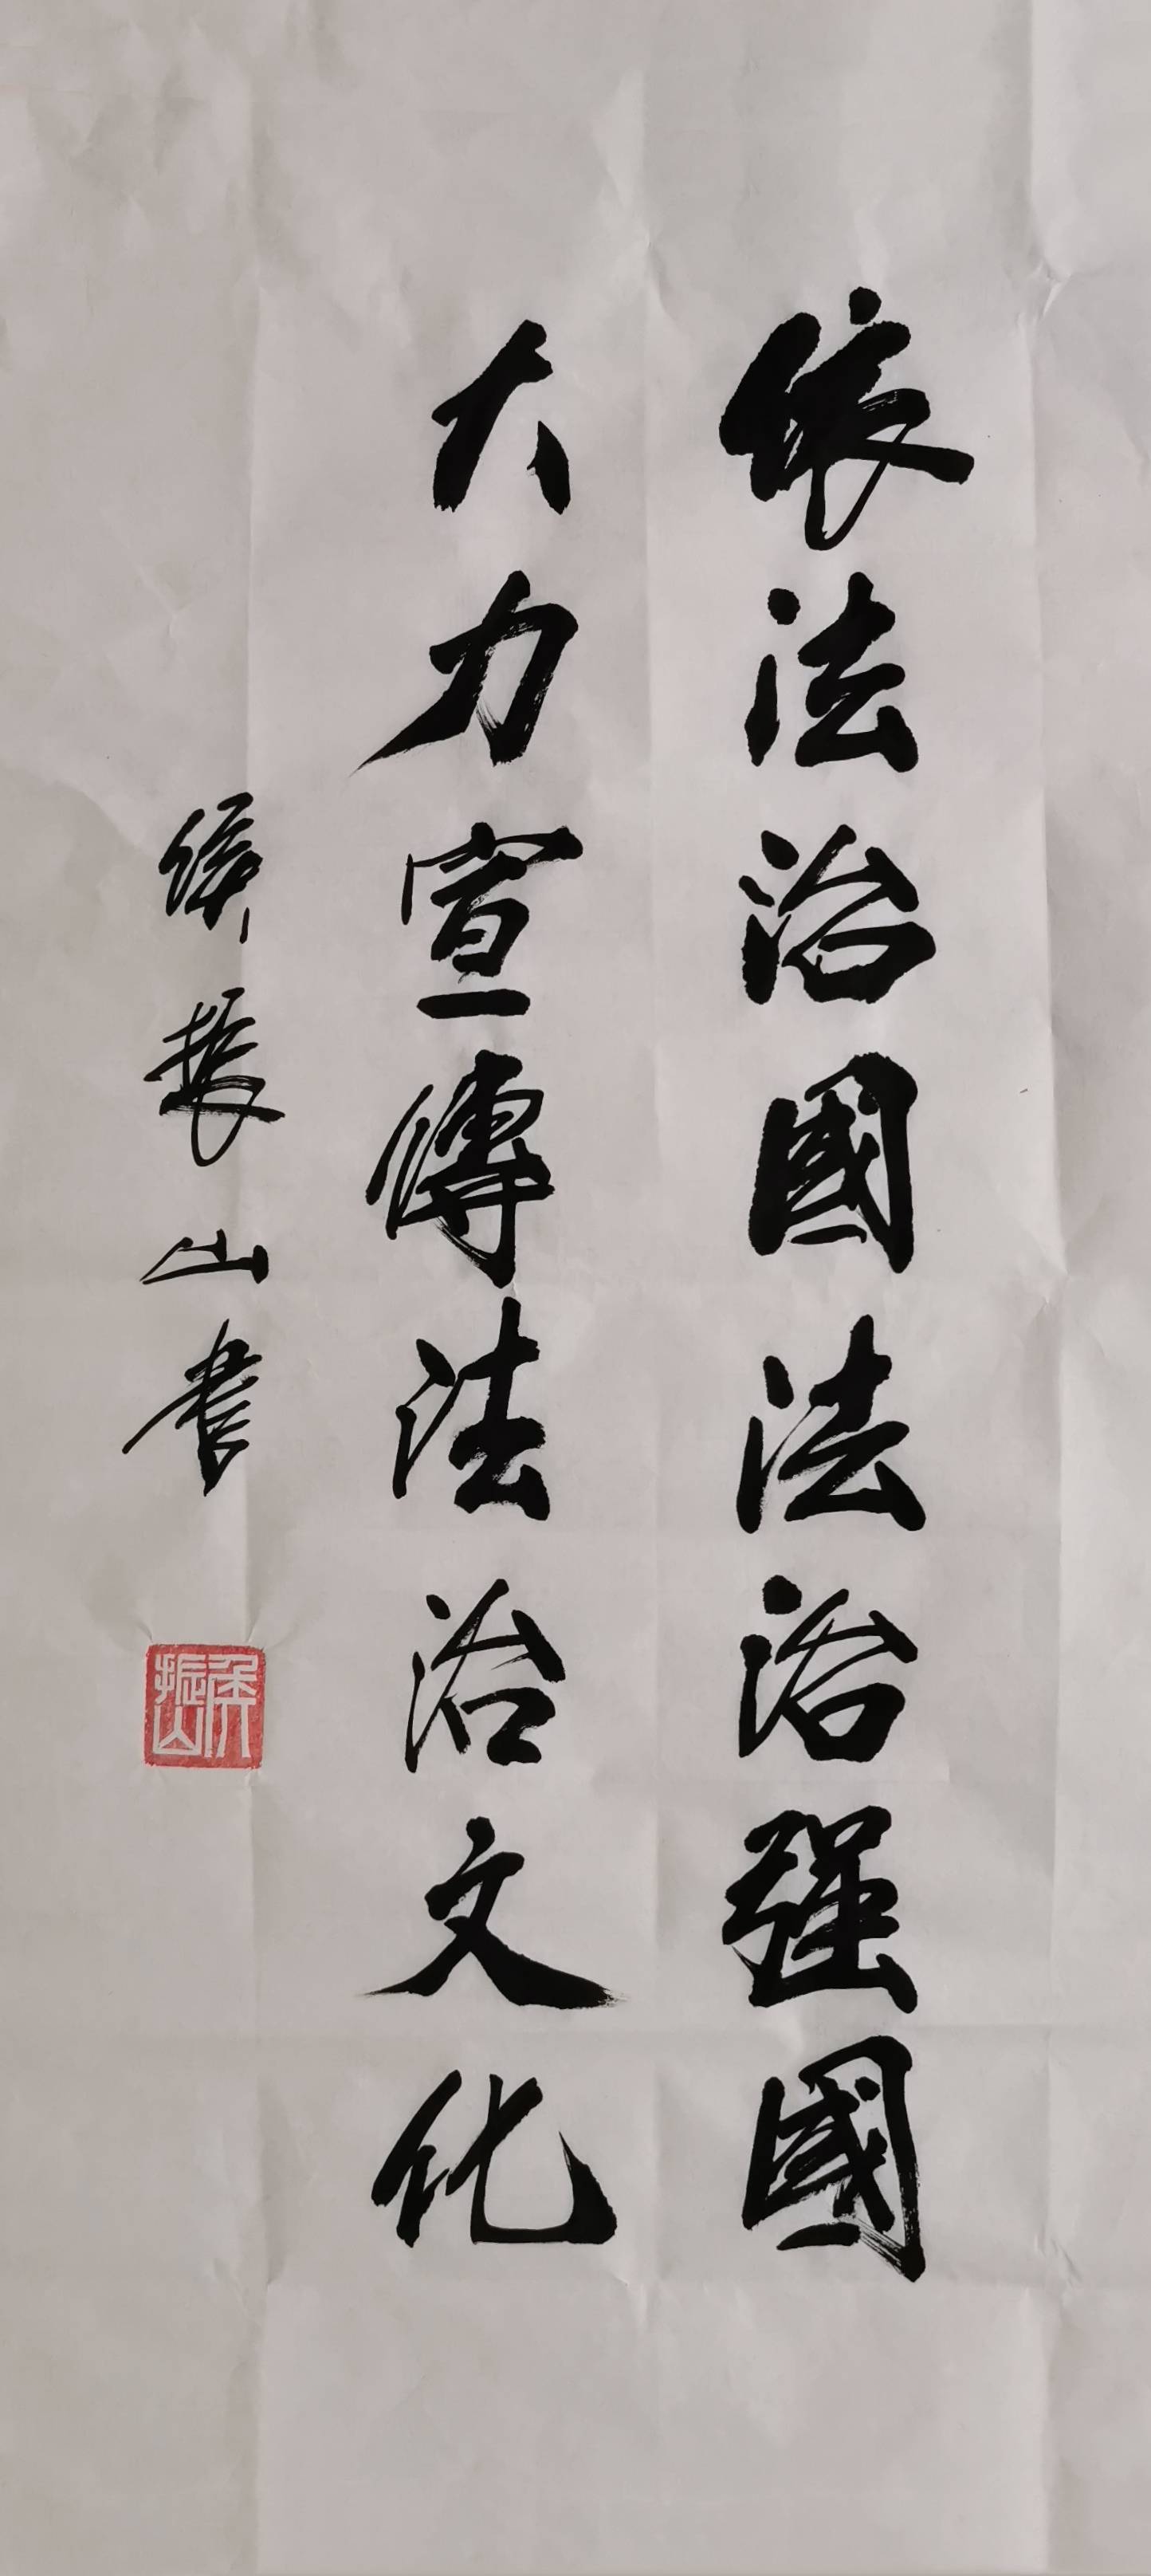 依法治國法治强國
大力宣傳法治文化
侯振山書
侯振山